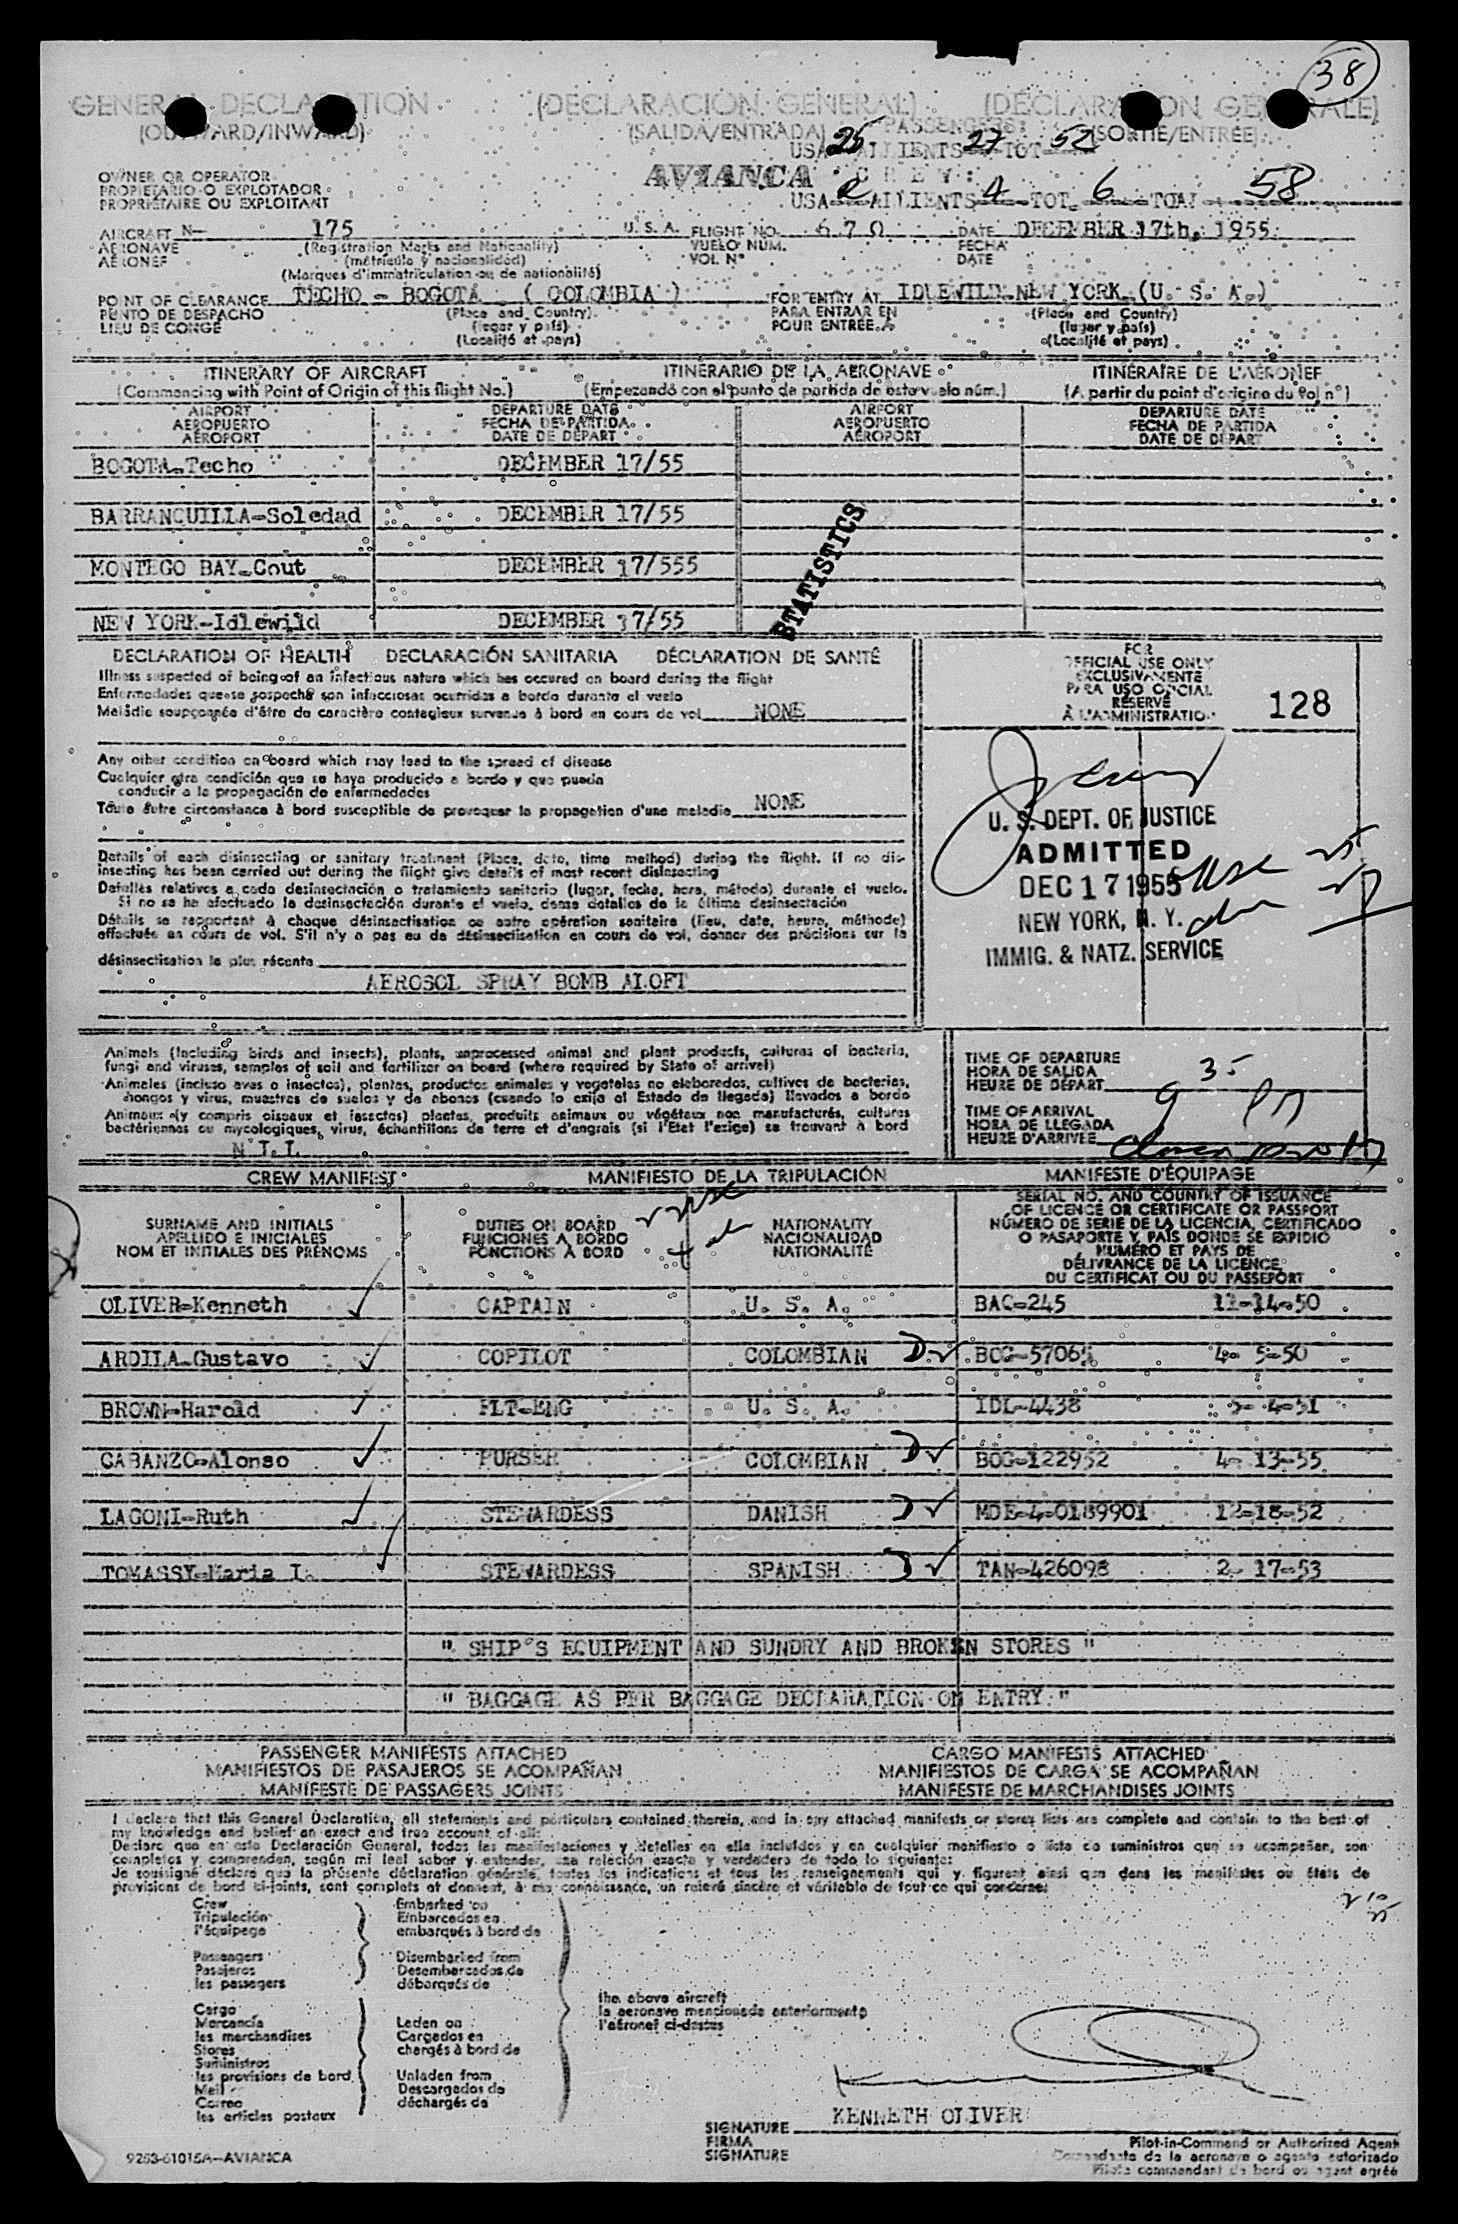 38
GENERAL DECLARATION (DECLARACIÓN GENERAL) (DECLARATION GENERALE)
(OUTWARD/INWARD) (SALIDA/ENTRADA) PASSENGERS: (SORTIE/ENTRÉE)
USA 25 ALLIENTS 27 TOT 52
OWNER OR OPERATOR AVIANCA CREW:
PROPIETARIO O EXPLOTADOR
PROPRIÉTAIRE OU EXPLOITANT USA 2 ALLIENTS 4 TOT. 6 TOAL 58
AIRCRAFT N- 175 U. S. A. FLIGHT NO. 670 DATE DECEMBER 17th, 1955.
AERONAVE (Registration Marks and Nationality) VUELO NUM. FECHA
AÉRONEF (matrícula y nacionalidad) VOL N° DATE
(Marques d'immatriculation ou de nationalité)
POINT OF CLEARANCE TECHO - BOGOTA ( COLOMBIA ) FOR ENTRY AT IDLEWILD-NEW YORK (U. S. A.)
PUNTO DE DESPACHO (Place and Country) PARA ENTRAR EN (Place and Country)
LIEU DE CONGÉ (lugar y país) POUR ENTRÉE A (lugar y país)
(Localité et pays) (Localité et pays)
ITINERARY OF AIRCRAFT ITINERARIO DE LA AERONAVE ITINÉRAIRE DE L'AÉRONEF
(Commencing with Point of Origin of this flight No.) (Empezando con el punto de partida de este vuelo núm.) (A partir du point d'origine du Vol n°)
AIRPORT DEPARTURE DATE AIRPORT DEPARTURE DATE
AEROPUERTO FECHA DE PARTIDA AEROPUERTO FECHA DE PARTIDA
AÉROPORT DATE DE DÉPART AÉROPORT DATE DE DÉPART
BOGOTA-Techo DECEMBER 17/55
BARRANQUILLA-Soledad DECEMBER 17/55
MONTEGO BAY-Cout DECEMBER 17/555
NEW YORK-Idlewild DECEMBER 17/55
STATISTICS
DECLARATION OF HEALTH DECLARACIÓN SANITARIA DÉCLARATION DE SANTÉ
Illness suspected of being of an infectious nature which has occured on board during the flight
Enfermedades que se sospecha son infecciosas ocurridas a bordo durante el vuelo
Maladie soupçonnée d'être de caractère contagieux survenue à bord en cours de vol NONE
FOR
OFFICIAL USE ONLY
EXCLUSIVAMENTE
PARA USO OFICIAL
RÉSERVÉ
À L'ADMINISTRATION
128
Any other condition on board which may lead to the spread of disease
Cualquier otra condición que se haya producido a bordo y que pueda
conducir a la propagación de enfermedades
Toute autre circonstance à bord susceptible de provoquer la propagation d'une maladie NONE
U. S. DEPT. OF JUSTICE
ADMITTED
DEC 17 1955
NEW YORK, N. Y.
IMMIG. & NATZ. SERVICE
USC 25
al 27
Details of each disinsecting or sanitary treatment (Place, date, time method) during the flight. If no dis-
insecting has been carried out during the flight give details of most recent disinsecting
Detalles relativos a cada desinsectación o tratamiento sanitario (lugar, fecha, hora, método) durante el vuelo.
Si no se ha efectuado la desinsectación durante el vuelo, dense detalles de la última desinsectación
Détails se rapportant à chaque désinsectisation ou autre opération sanitaire (lieu, date, heure, méthode)
effectuée en cours de vol. S'il n'y a pas eu de désinsectisation en cours de vol, donner des précisions sur la
désinsectisation la plus récente
AEROSOL SPRAY BOMB ALOFT
Animals (Including birds and insects), plants, unprocessed animal and plant products, cultures of bacteria,
fungi and viruses, samples of soil and fertilizer on board (where required by State of arrival)
Animales (incluso aves o insectos), plantas, productos animales y vegetales no elaborados, cultivos de bacterias,
hongos y virus, muestras de suelos y de abonos (cuando lo exija el Estado de llegada) llevados a bordo
Animaux (y compris oiseaux et insectes) plantes, produits animaux ou végétaux non manufacturés, cultures
bactériennes ou mycologiques, virus, échantillons de terre et d'engrais (si l'Etat l'exige) se trouvant à bord
N I L
TIME OF DEPARTURE
HORA DE SALIDA
HEURE DE DÉPART
TIME OF ARRIVAL 9 Pm
HORA DE LLEGADA
HEURE D'ARRIVÉE
CREW MANIFEST MANIFIESTO DE LA TRIPULACIÓN MANIFESTE D'ÉQUIPAGE
2 USC
4 al
SURNAME AND INITIALS DUTIES ON BOARD NATIONALITY SERIAL NO. AND COUNTRY OF ISSUANCE
APELLIDO E INICIALES FUNCIONES A BORDO NACIONALIDAD OF LICENCE OR CERTIFICATE OR PASSPORT
NOM ET INITIALES DES PRÉNOMS FONCTIONS À BORD NATIONALITÉ NÚMERO DE SERIE DE LA LICENCIA, CERTIFICADO
O PASAPORTE Y PAÍS DONDE SE EXPIDIÓ
NUMÉRO ET PAYS DE
DÉLIVRANCE DE LA LICENCE,
DU CERTIFICAT OU DU PASSEPORT
OLIVER-Kenneth CAPTAIN U. S. A. BAC-245 11-14-50
ARDILA-Gustavo COPILOT COLOMBIAN D BOG-57065 4- 5-50
BROWN-Harold FLT-ENG U. S. A. IDL-4438 5- 4-51
CABANZO-Alonso PURSER COLOMBIAN D BOG-122952 4- 13-55
LAGONI-Ruth STEWARDESS DANISH D MDE-4-0189901 12-18-52
TOMASSY-Maria I. STEWARDESS SPANISH D TAN-426098 2- 17-53
" SHIP'S EQUIPMENT AND SUNDRY AND BROKEN STORES "
" BAGGAGE AS PER BAGGAGE DECLARATION ON ENTRY."
PASSENGER MANIFESTS ATTACHED CARGO MANIFESTS ATTACHED
MANIFIESTOS DE PASAJEROS SE ACOMPAÑAN MANIFIESTOS DE CARGA SE ACOMPAÑAN
MANIFESTE DE PASSAGERS JOINTS MANIFESTE DE MARCHANDISES JOINTS
I declare that this General Declaration, all statements and particulars contained therein, and in any attached manifests or stores lists are complete and contain to the best of
my knowledge and belief an exact and true account of all:
Declaro que en esta Declaración General, todas las manifestaciones y detalles en ella incluídos y en cualquier manifiesto o lista de suministros que se acompañen, son
completos y comprenden, según mi leal saber y entender, una relación exacta y verdadera de todo lo siguiente:
Je soussigné déclare que la présente déclaration générale, toutes les indications et tous les renseignements qui y figurent ainsi que dans les manifestes ou états de
provisions de bord ci-joints, sont complets et donnent, à ma connaissance, un relevé sincère et véritable de tout ce qui concerne:
Crew Embarked on
Tripulación Embarcados en
l'équipage embarqués à bord de
Passengers Disembarked from
Pasajeros Desembarcados de
les passagers débarqués de
the above aircraft
la aeronave mencionada anteriormente
l'aéronef ci-dessus
Cargo
Mercancía Laden on
les marchandises Cargados en
Stores chargés à bord de
Suministros
les provisions de bord Unladen from
Mail Descargados de
Correo déchargés de
les articles postaux
SIGNATURE KENNETH OLIVER
FIRMA Pilot-in-Command or Authorized Agent
SIGNATURE Comandante de la aeronave o agente autorizado
Pilote commandant de bord ou agent agréé
9263-61015A-AVIANCA